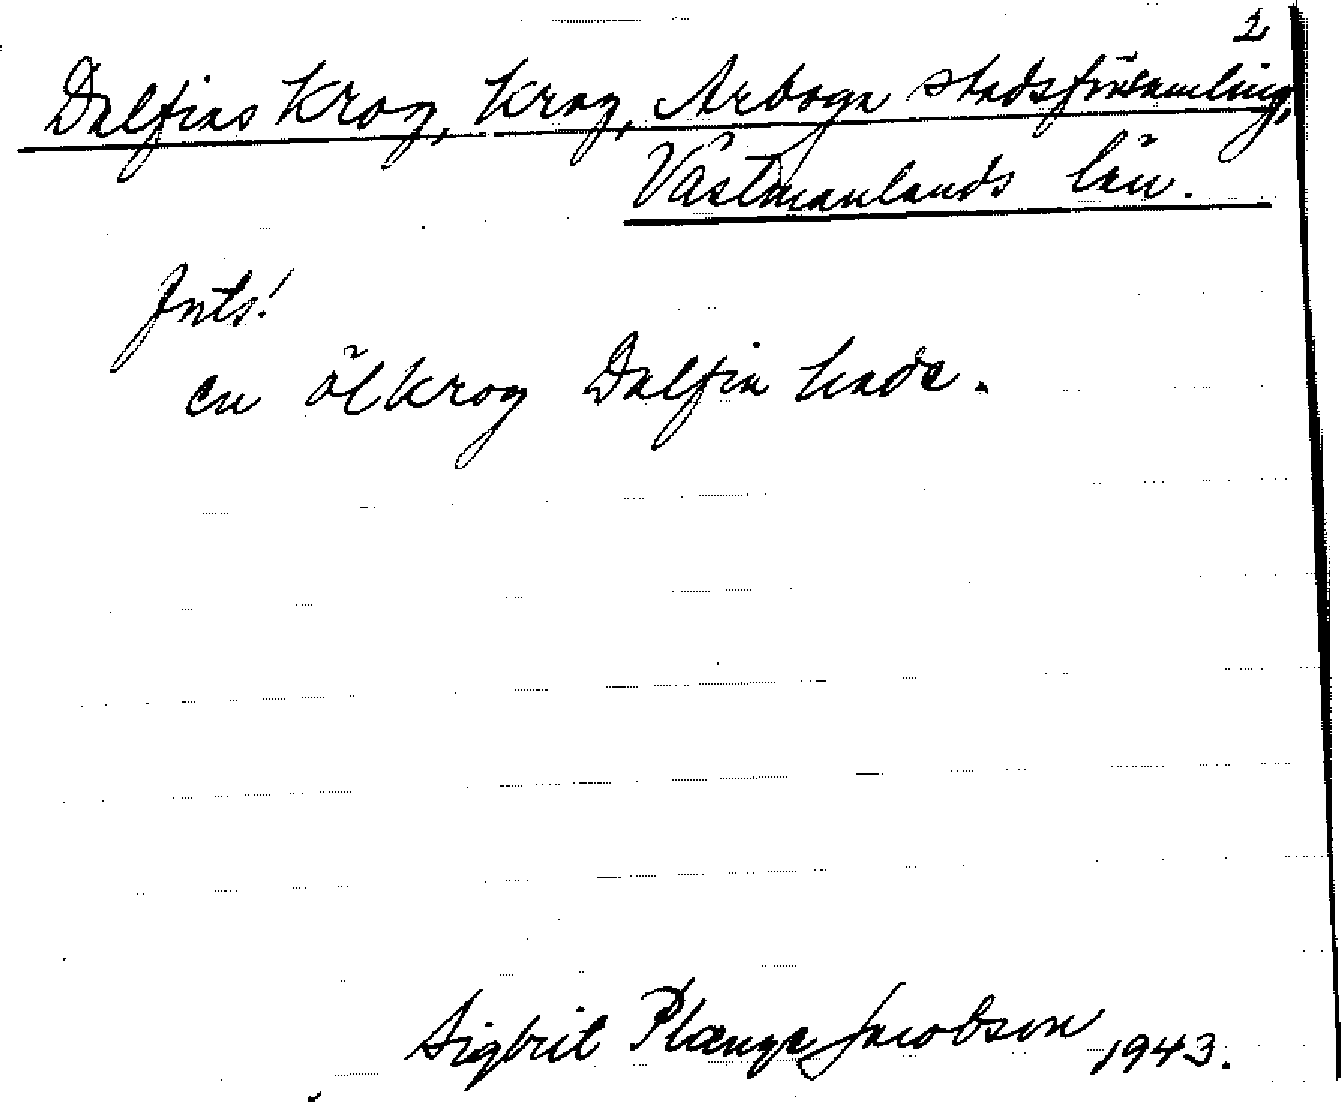 2
Dalfins Krog, krog, Arboga stadsförsamling,
Västmanlands län.
Jnts!
en ölkrog Dalfin hade.
Sigbrit Plænge Jacobson 1943.